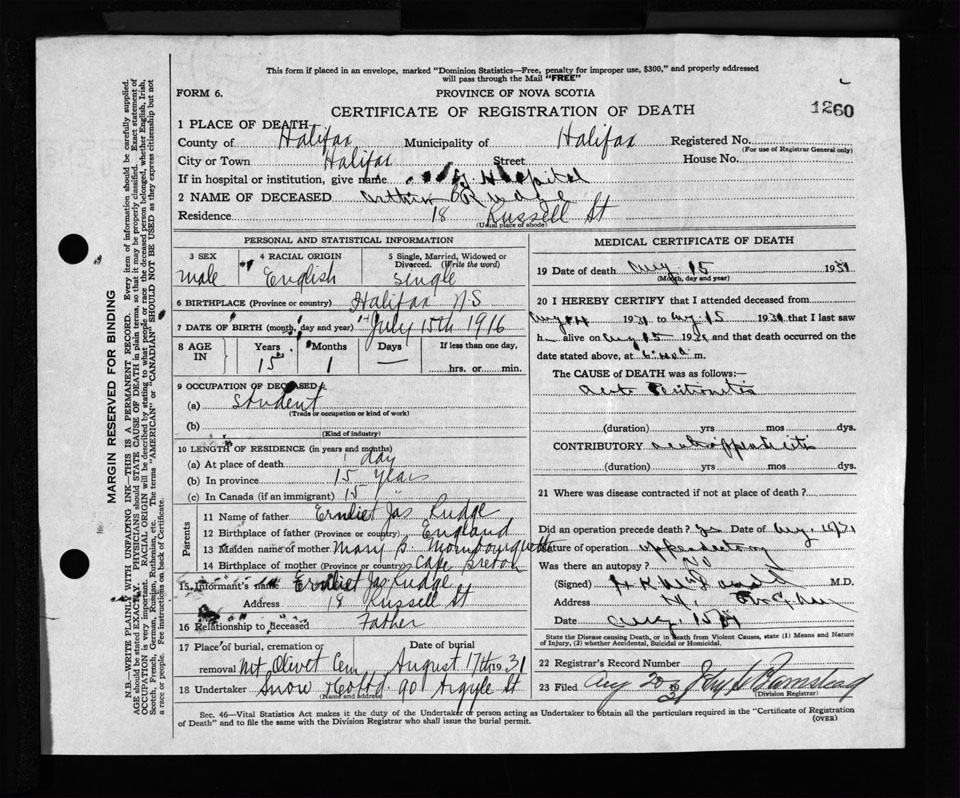 This form if placed in an envelope, marked "Dominion Statistics—Free, penalty for improper use, $300," and properly addressed
will pass through the Mail "FREE"
FORM 6.
PROVINCE OF NOVA SCOTIA
1260
CERTIFICATE OF REGISTRATION OF DEATH
1 PLACE OF DEATH
County of Halifax Municipality of Halifax Registered No.
(For use of Registrar General only)
City or Town Halifax Street House No.
If in hospital or institution, give name Hospital
2 NAME OF DECEASED Arthur Rudge
Residence 18 Russell St
(Usual place of abode)
PERSONAL AND STATISTICAL INFORMATION
3 SEX 4 RACIAL ORIGIN 5 Single, Married, Widowed or
Divorced. (Write the word)
male English Single
6 BIRTHPLACE (Province or country) Halifax N.S
7 DATE OF BIRTH (month, day and year) July 15th 1916
8 AGE IN Years Months Days If less than one day,
15 1 — hrs. or min.
9 OCCUPATION OF DECEASED
(a) Student
(Trade or occupation or kind of work)
(b)
(Kind of industry)
10 LENGTH OF RESIDENCE (in years and months)
(a) At place of death 1 day
(b) In province 15 years
(c) In Canada (if an immigrant) 15 "
Parents
11 Name of father Ernliet Jas Rudge
12 Birthplace of father (Province or country) England
13 Maiden name of mother Mary
14 Birthplace of mother (Province or country) Cape Breton
15 Informant's name Ernliet Jas Rudge
Address 18 Russell St
16 Relationship to deceased Father
17 Place of burial, cremation or Date of burial
removal Mt Olivet Cem August 17th 1931
18 Undertaker Snow & Co Ltd 90 Argyle St
(Name and address)
MEDICAL CERTIFICATE OF DEATH
19 Date of death Aug 15 1931
(Month, day and year)
20 I HEREBY CERTIFY that I attended deceased from
Aug 1931 to Aug 15 1931 that I last saw
h alive on Aug 15 1931 and that death occurred on
date stated above, at m.
The CAUSE of DEATH was as follows:—
Acute Peritonitis
(duration) yrs mos dys.
CONTRIBUTORY acute appendicitis
(duration) yrs mos dys.
21 Where was disease contracted if not at place of death?
Did an operation precede death? yes Date of Aug
Nature of operation appendectomy
Was there an autopsy? No
(Signed) M.D.
Address
Date Aug. 15
State the Disease causing Death, or in Death from Violent Causes, state (1) Means and Nature
of Injury, (2) whether Accidental, Suicidal or Homicidal.
22 Registrar's Record Number
23 Filed Aug 20 31
Division Registrar)
Sec. 46—Vital Statistics Act makes it the duty of the Undertaker or person acting as Undertaker to obtain all the particulars required in the "Certificate of Registration
of Death" and to file the same with the Division Registrar who shall issue the burial permit. (OVER)
MARGIN RESERVED FOR BINDING
N.B.—WRITE PLAINLY WITH UNFADING INK—THIS IS A PERMANENT RECORD. Every item of information should be carefully supplied.
AGE should be stated EXACTLY. PHYSICIANS should STATE CAUSE OF DEATH in plain terms, so that it may be properly classified. Exact statement of
OCCUPATION is very important. RACIAL ORIGIN will be described by stating to what people or race the deceased person belonged, whether English, Irish,
Scotch, French, German, Russian, Ruthenian, etc. The terms "AMERICAN" or "CANADIAN" SHOULD NOT BE USED as they express citizenship but not
a race or people. Fee instructions on back of Certificate.